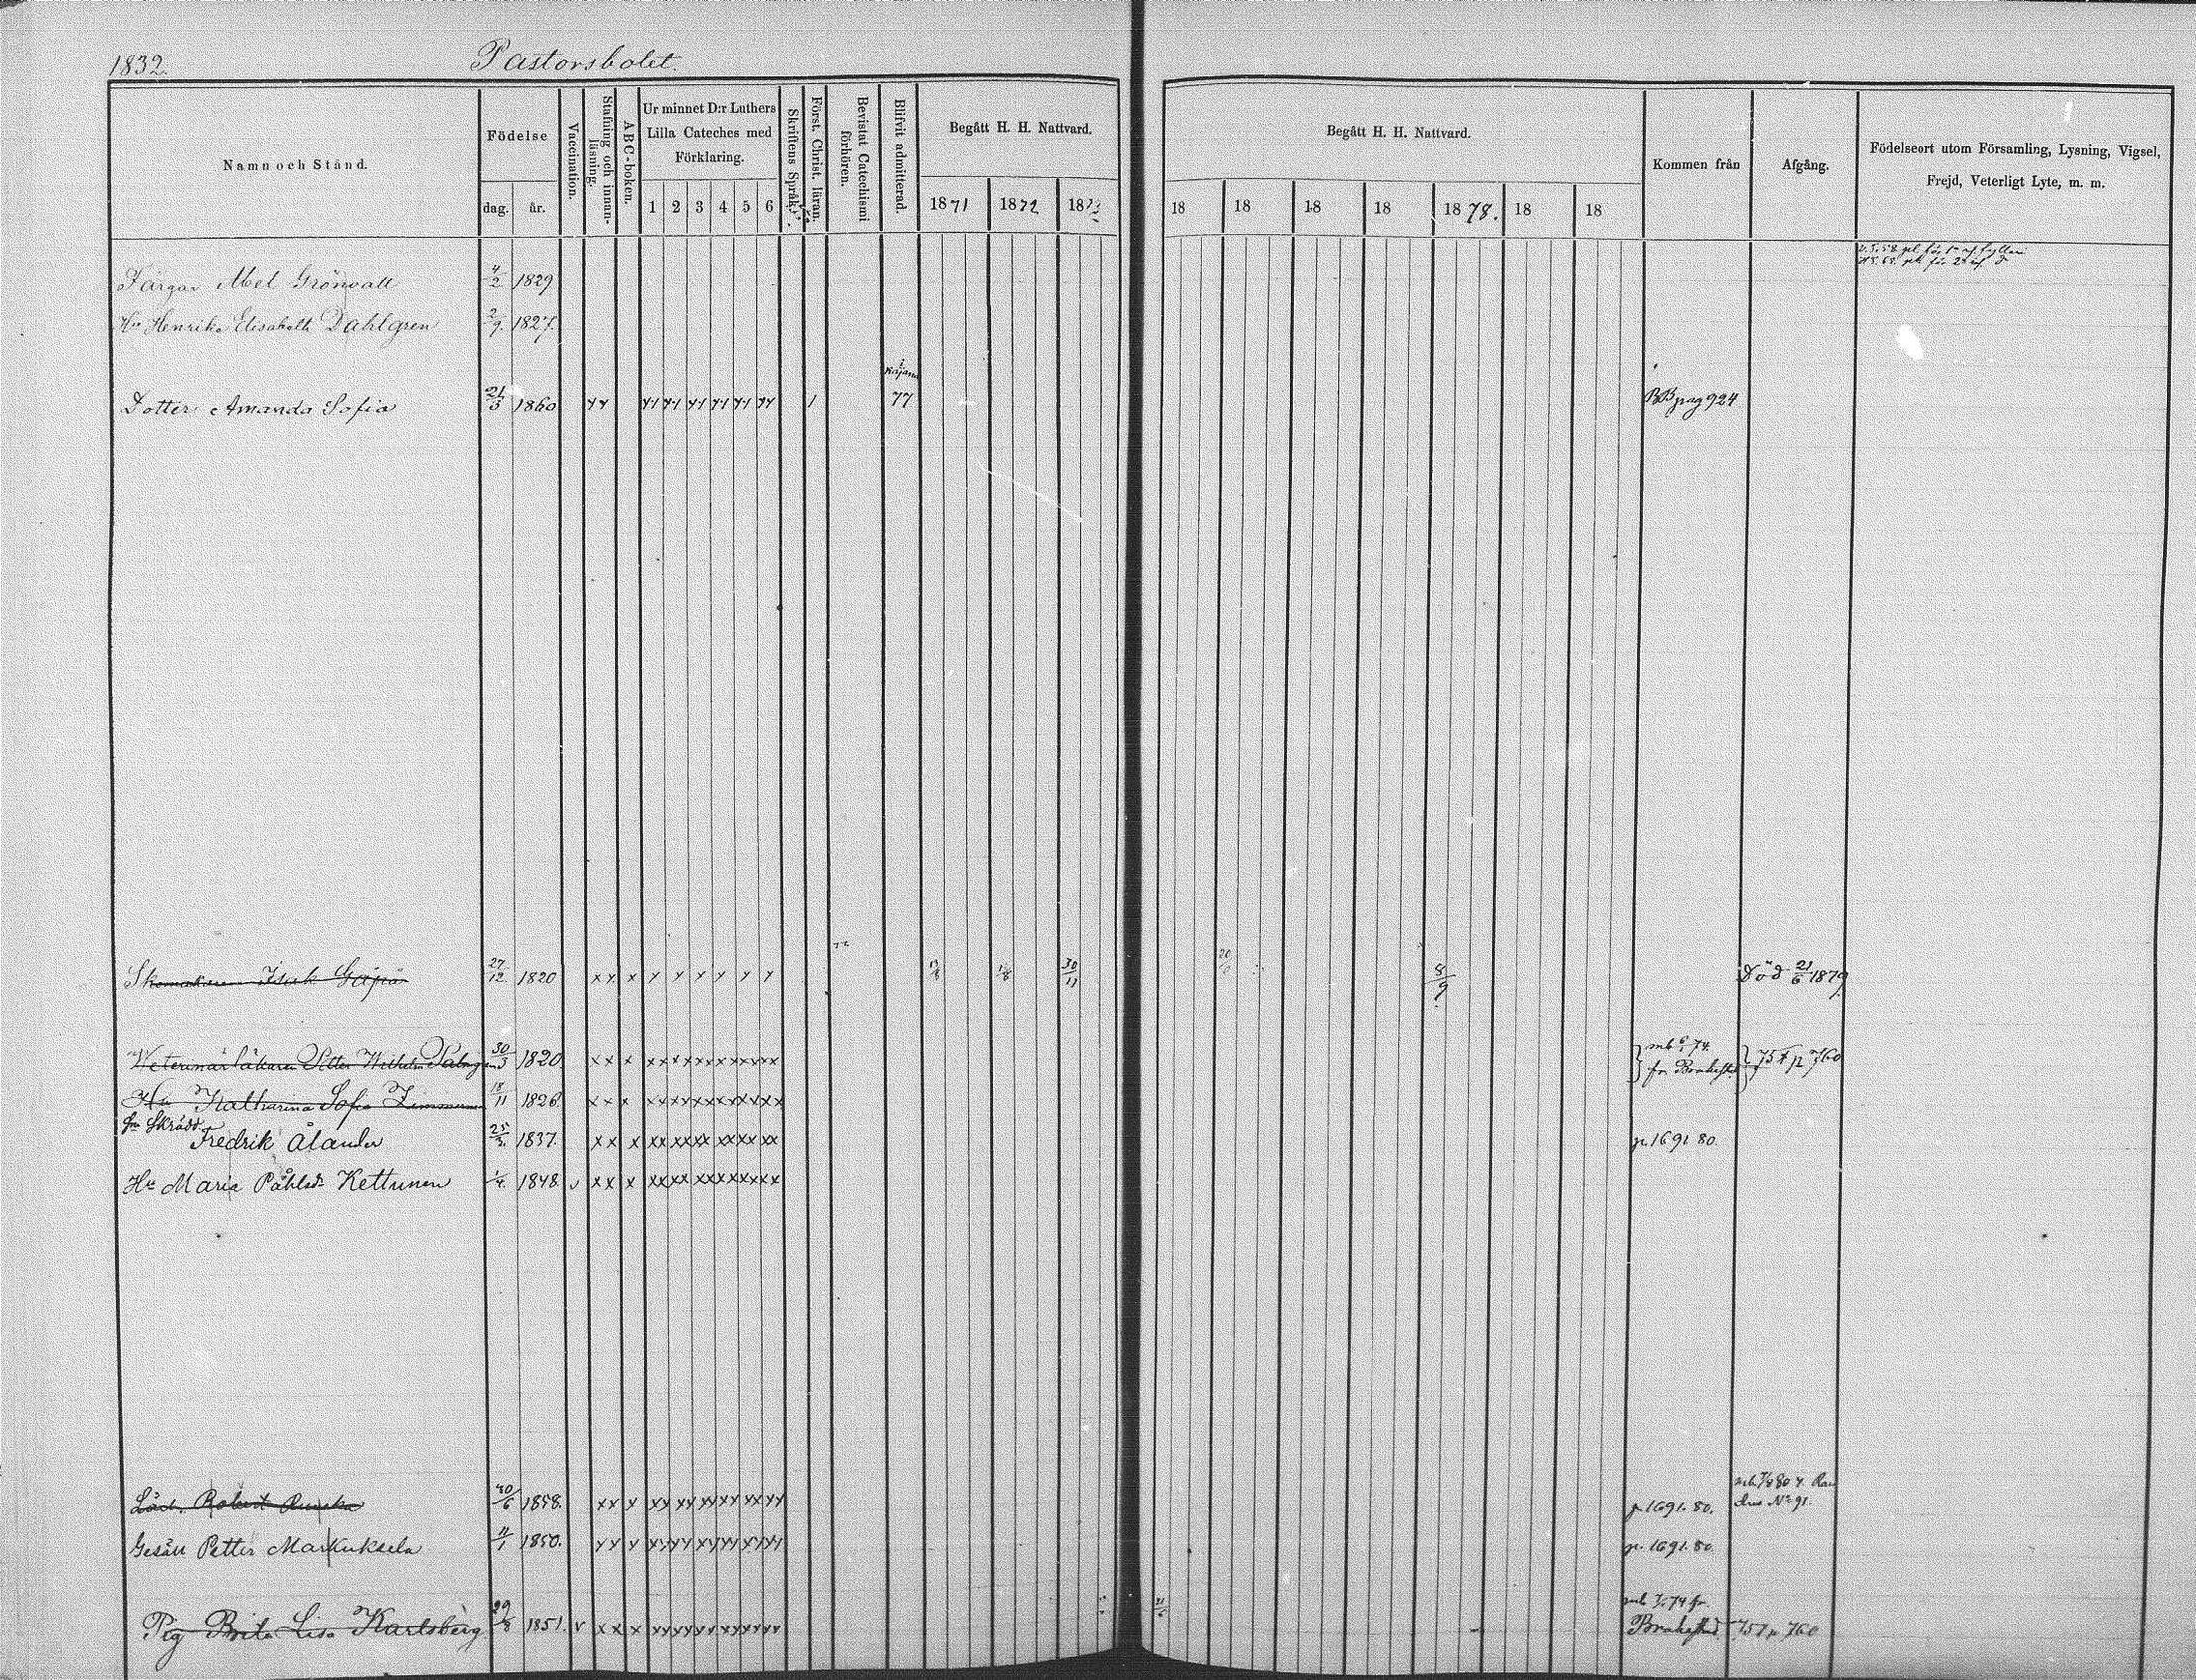 1832. Pastorsbolet.
Namn och Stånd.
Födelse
dag. år.
Vaccination.
Stafning och innan-läsning.
ABC-boken.
Ur minnet D:r Luthers
Lilla Cateches med
Förklaring.
1 2 3 4 5 6
Skriftens Språk.
Först. Christ. läran.
Bevistat Catechismi förhören.
Blifvit admitterad.
Begått H. H. Nattvard.
1871 1872 1873
Begått H. H. Nattvard.
18 18 18 18 1878. 18 18
Kommen från
Afgång.
Födelseort utom Församling, Lysning, Vigsel,
Frejd, Veterligt Lyte, m. m.
Färgar Abel Grönvall 4/2 1829
Hu Henrika Elisabeth Dahlgren 2/9. 1827.
Dotter Amanda Sofia 21/3 1860 1 77 BB pag 924
Skomakaren Isak 27/12 1820 x x x x x x x x x 30/11 8/9 Död 21/6 1879
Veterinärläkaren Petter Wilhelm 30/3 1820. x x x xxxxxxxxxxxx fr. Brahestad 757 p 760
Hu Katharina Sofia 18/11 1826. x x x xxxxxxxxxxxx
Skrädd.
Fredrik Ålander 25/3. 1837. x x x xxxxxxxxxxxx p. 1691. 80.
Hu Maria Påhlsdr Kettunen 1/4. 1848. v x x x xxxxxxxxxxxx
Robert 30/6 1858. xx x xx xx xx xx xx xx p. 1691. 80. No 91
Gesäll Petter Markuksela 11/1 1850. p. 1691. 80.
Pig Brita Lisa Karlsberg 29/8 1851. v x x x xxxxxxxxxxxx Brahestad 757 p 760